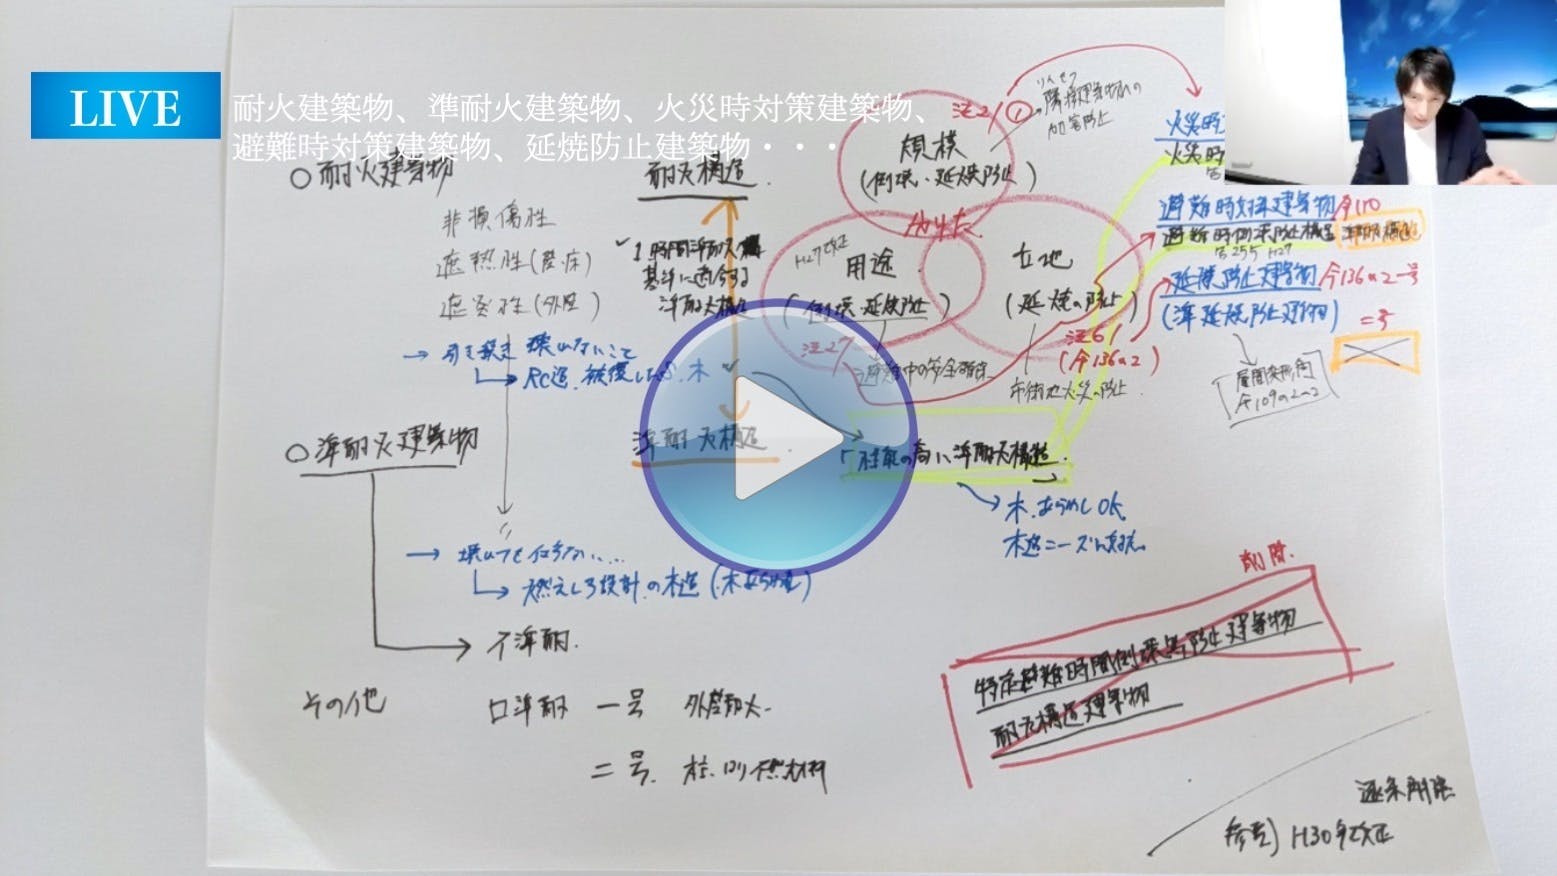 LIVE
耐火建築物、準耐火建築物、火災時対策建築物、
避難時対策建築物、延焼防止建築物・・・
○耐火建築物
耐火構造
非損傷性
遮熱性(壁・床)
遮炎性(外壁)
1時間準耐火
基準に適合する
準耐火構造
→ 引き続き 壊れないこと
RC造、被覆した 木
○準耐火建築物
準耐火構造
→ 壊れても仕方ない…
燃えしろ設計の木造(木あらわし)
イ準耐
その他
ロ準耐 一号 外壁耐火
二号 柱・はり不燃材料
法21
①
隣接建築物への
加害防止
規模
(倒壊・延焼防止)
H27改正
用途
(倒壊・延焼防止)
法27
避難中の安全確保
立地
(延焼の防止)
法61
(令136の2)
市街地火災の防止
火災時
火災時
避難時対策建築物 令110
避難時倒壊防止構造 準耐火構造
告255 H27
延焼防止建築物 令136の2一号
(準延焼防止建築物) 二号
層間変形角
令109の2の2
性能の高い準耐火構造
木、あらわしOK
木造ニーズに対応
削除
特定避難時間倒壊等防止建築物
耐火構造建築物
逐条解説
参考) H30年改正